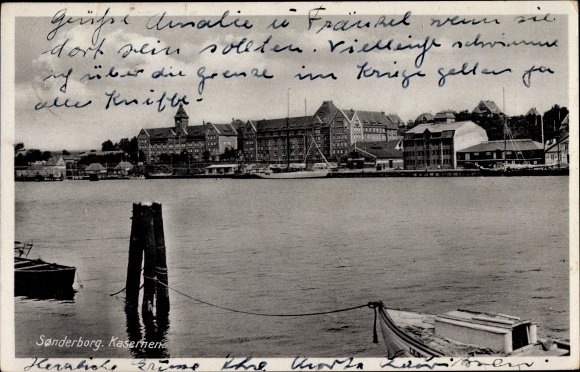 Grüße Amalie u Fränkel, wenn sie
dort sein sollten. Vielleicht schwimme
ich über die Grenze im Kriege gelten ja
alle Kniffe.
Sønderborg. Kasernen.
Herzliche Grüsse Ihre Marta